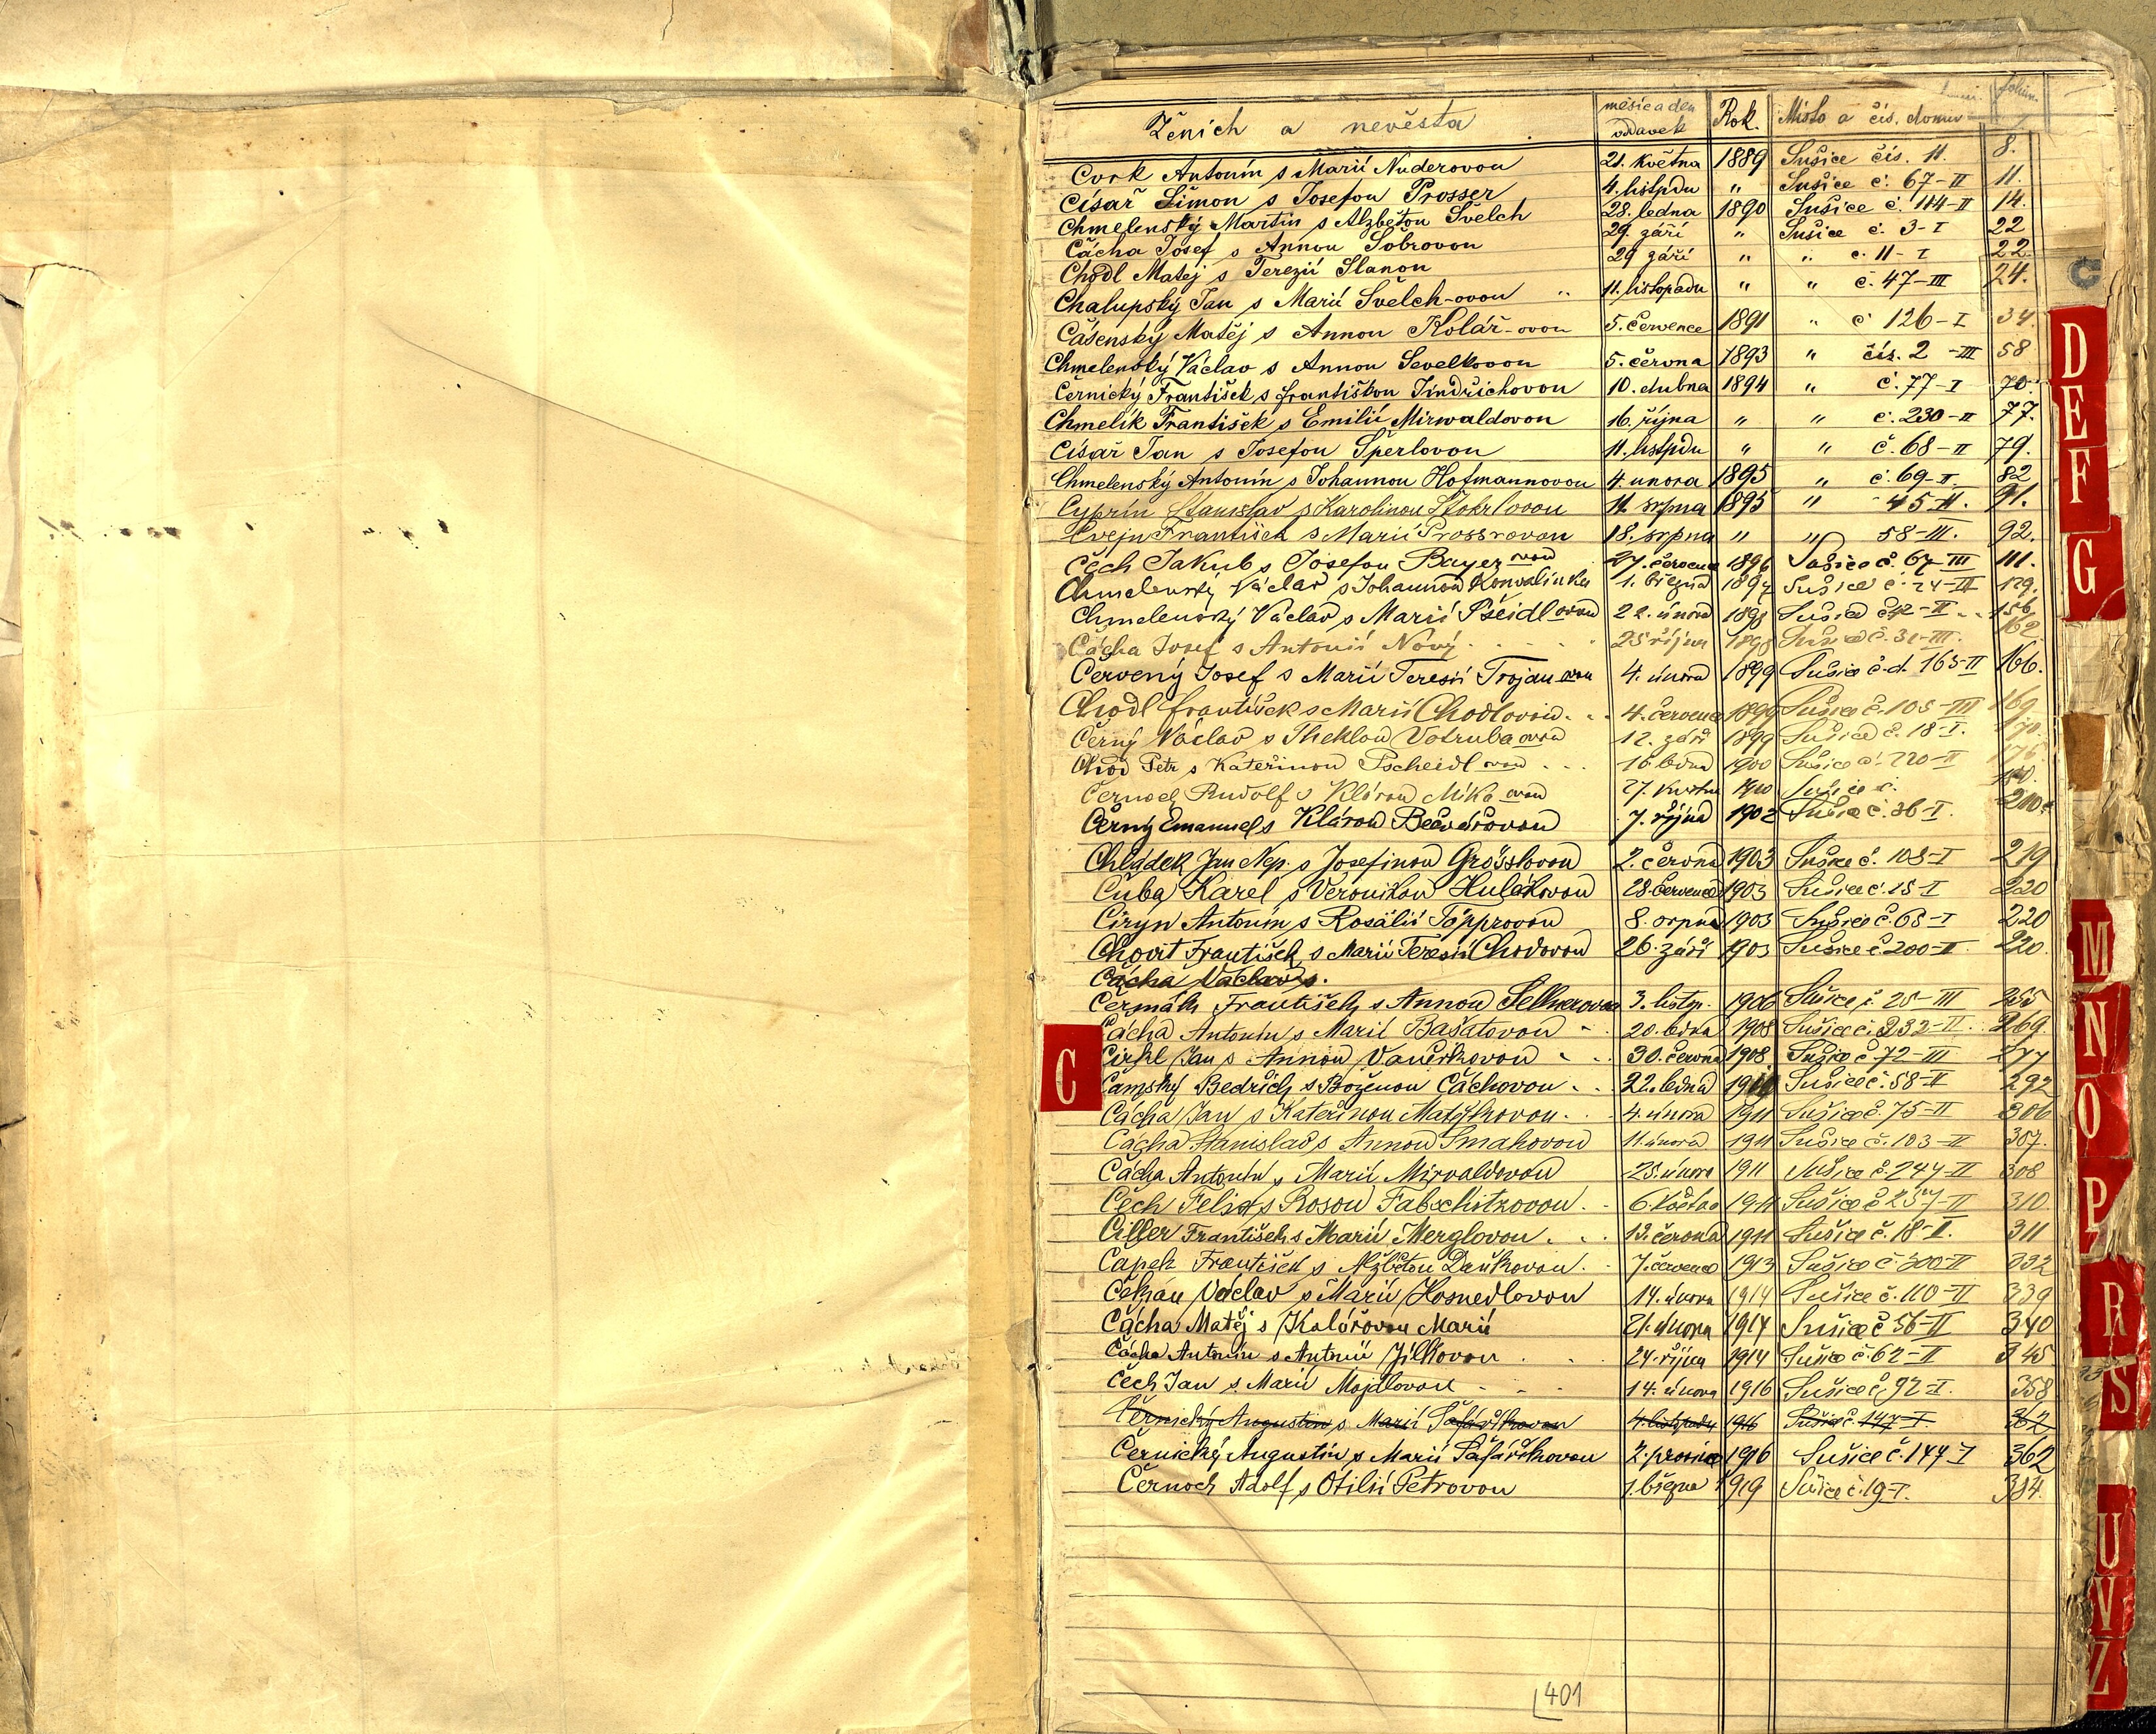 Ženich a nevěsta měsíc a den oddavek Rok. Místo a čís. domu folium.
Cvrk Antonín s Marií Nuderovou 21. května 1889 Sušice čís. 11. 8.
Císař Šimon s Josefou Prosser 4. listpdu " Sušice č. 67-II 11.
Chmelenský Martin s Alzbětou Švelch 28. ledna 1890 Sušice č. 114-II 14.
Čácha Josef s Annou Sobrovou 29. září " Sušice č. 3-I 22
Chodl Matěj s Terezií Slanou 29 září " " č. 11-I 22.
Chalupský Jan s Marií Švelch-ovou " 11. listopadu " " č. 47-III 24.
Čásenský Matěj s Annou Kolář-ovou 5. července 1891 " č 126-I 34.
Chmelenský Václav s Annou Sevelkovou 5. června 1893 " čís. 2-III 58
Černický František s Františkou Jindřichovou 10. dubna 1894 " č. 77-I 70.
Chmelík František s Emilií Mirwaldovou 16. října " " č. 230-II 77.
Císař Jan s Josefou Šperlovou 11. listpdu " " č. 68-II 79.
Chmelenský Antonín s Johannou Hofmannovou 4. unora 1895 " č. 69-I 82
Cyprín Stanislav s Karolinou Štokrlovou 11. srpna 1895 " 45-II. 91.
Cvejn František s Marií Prossrovou 18. srpna " " 58-III. 92.
Čech Jakub s Josefou Bayer ovou 27. července 1896 Sušice č. 67-III 111.
Chmelenský Václav s Johannou Konvalinka 1. března 1897 Sušice č. 24-III 129.
Chmelenský Václav s Marií Pšeidl ovou 22. února 1898 Sušice č 42-II 156.
Čácha Josef s Antonií Nový 25 října 1898 Sušice č. 31-III. 162.
Červený Josef s Marií Teresií Trojan ovou 4. února 1899 Sušice č.d. 163-II 166.
Chodl František s Marií Chodlovou 4. července 1899 Sušice č. 105-III 169
Černý Václav s Theklou Votruba ovou 12. září 1899 Sušice č. 18-I. 170.
Chod Petr s Kateřinou Pscheidl ovou 16 ledna 1900 Sušice č. 220-II 176.
Černoch Rudolf s Klárou Mika ovou 27. května 1900 Sušice č. 180.
Černý Emanuel s Klárou Bečvářovou 7. října 1902 Sušice č. 36-I. 210.
Chládek Jan Nep. s Josefinou Grösslovou 2. června 1903 Sušice č. 103-I 219
Čuba Karel s Veronikou Hulákovou 28. července 1903 Sušice č. 15-I 220
Ciryn Antonín s Rosálií Töpprovou 8. srpna 1903 Sušice č. 63-I 220
Chovit František s Marií Teresií Chodovou 26. září 1903 Sušice č. 200-II 220.
Čácha Václav s.
Čermák František s Annou Selknerovou 3. listop. 1906 Sušice č. 25-III 255
Čácha Antonín s Marií Bašatovou 20. ledna 1908 Sušice č. 232-II 269.
Cirhl Jan s Annou Vaněrkovou 30. června 1908 Sušice č. 72-III 277
Čamský Bedřich s Boženou Čáchovou 22. ledna 1910 Sušice č. 58-II 292
Čácha Jan s Kateřinou Matějkovou 4. února 1911 Sušice č. 75-II 306
Čácha Stanislav s Annou Smahovou 11. února 1911 Sušice č. 103-II 307.
Čácha Antonín s Marií Mirvaldovou 25. února 1911 Sušice č. 244-II 308
Čech Felix s Rosou Fabschitzovou 6. května 1911 Sušice č 257-II 310
Ciller František s Marií Merglovou 13. června 1911 Sušice č. 18-I. 311
Čapek František s Alžbětou Daňkovou 7. července 1913 Sušice č 300-II 332
Čekan Václav s Marií Hosnedlovou 14. února 1914 Sušice č. 110-II 339
Čácha Matěj s Kolářovou Marií 21. února 1914 Sušice č 56-II 340
Čácha Antonín s Antonií Jílkovou 24. října 1914 Sušice č. 62-II 345
Čech Jan s Marií Majdlovou 14. února 1916 Sušice č. 92-I. 358
Černický Augustin s Marií Šafaříkovou 4. listopadu 1916 Sušice č. 147-I 362
Černický Augustin s Marií Šafaříkovou 2. prosince 1916 Sušice č. 147-I 362
Černoch Adolf s Otilií Petrovou 1. března 1919 Sušice č. 19-I. 384.
401
C
C
D
E
F
G
M
N
O
P
R
S
U
V
Z